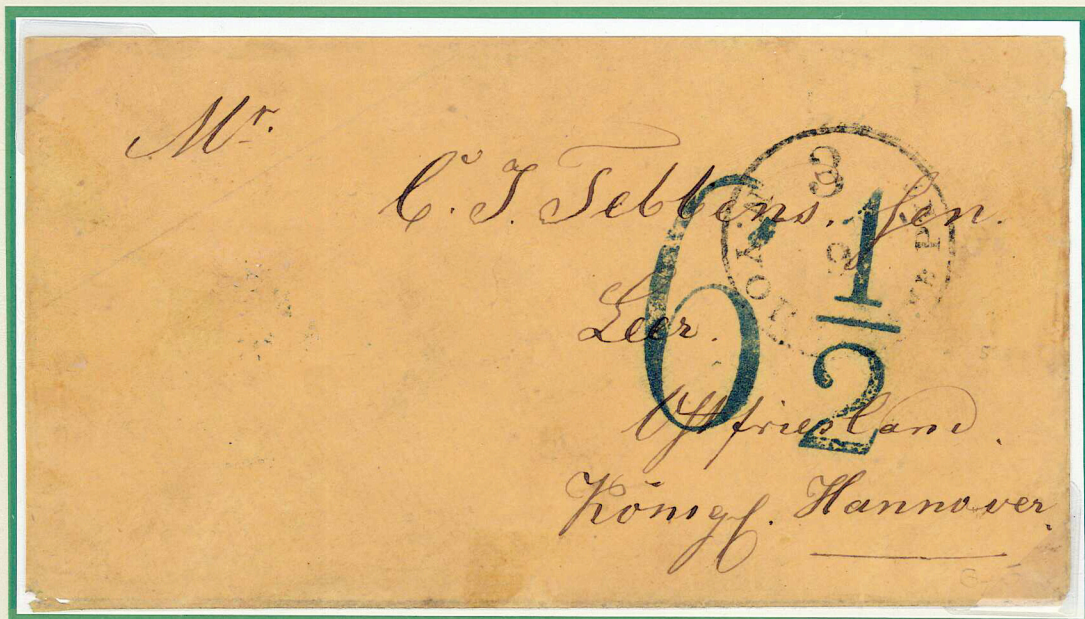 Mr.
C. J. Tebbens, sen.
Leer.
Ostfriesland.
Königl. Hannover.
6 1/2
3